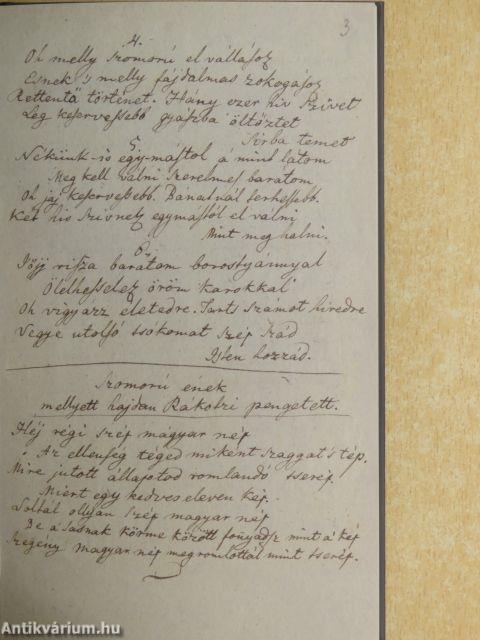 3
4.
Oh melly szomorú el válásoz
Esnek 's melly fájdalmas zokogásoz
Rettentő történet. Hány ezer hiv Szivet
Leg keservessebb gyászba öltöztet
Sirba temet
5.
Nékünk is egy-mástol á mint látom
Meg kell válni Szerelmes barátom
Oh jaj keservessebb. Bánatnál terhessebb.
Két hiv szivnek egymástól el válni
Mint meg halni.
6.
Jöjj vissza barátom borostyánnyal
Ölelhesselek öröm karokkal
Oh vigyázz életedre. Tarts számot hiredre
Vegye utolsó tsókomat szép Szád
Isten hozzád.
Szomorú ének
mellyett hajdan Rákotzi pengetett.
Héj régi szép magyar nép
Az ellenség téged miként szaggat 's tép.
Mire jutott állapotod romlandó tserép
Miért egy kedves eleven kép
Voltál ollyan szép magyar nép
De a Sasnak körme között fonyadsz mint a kép
Szegény magyar nép megromlottál mint tserép.
Antikvárium.hu